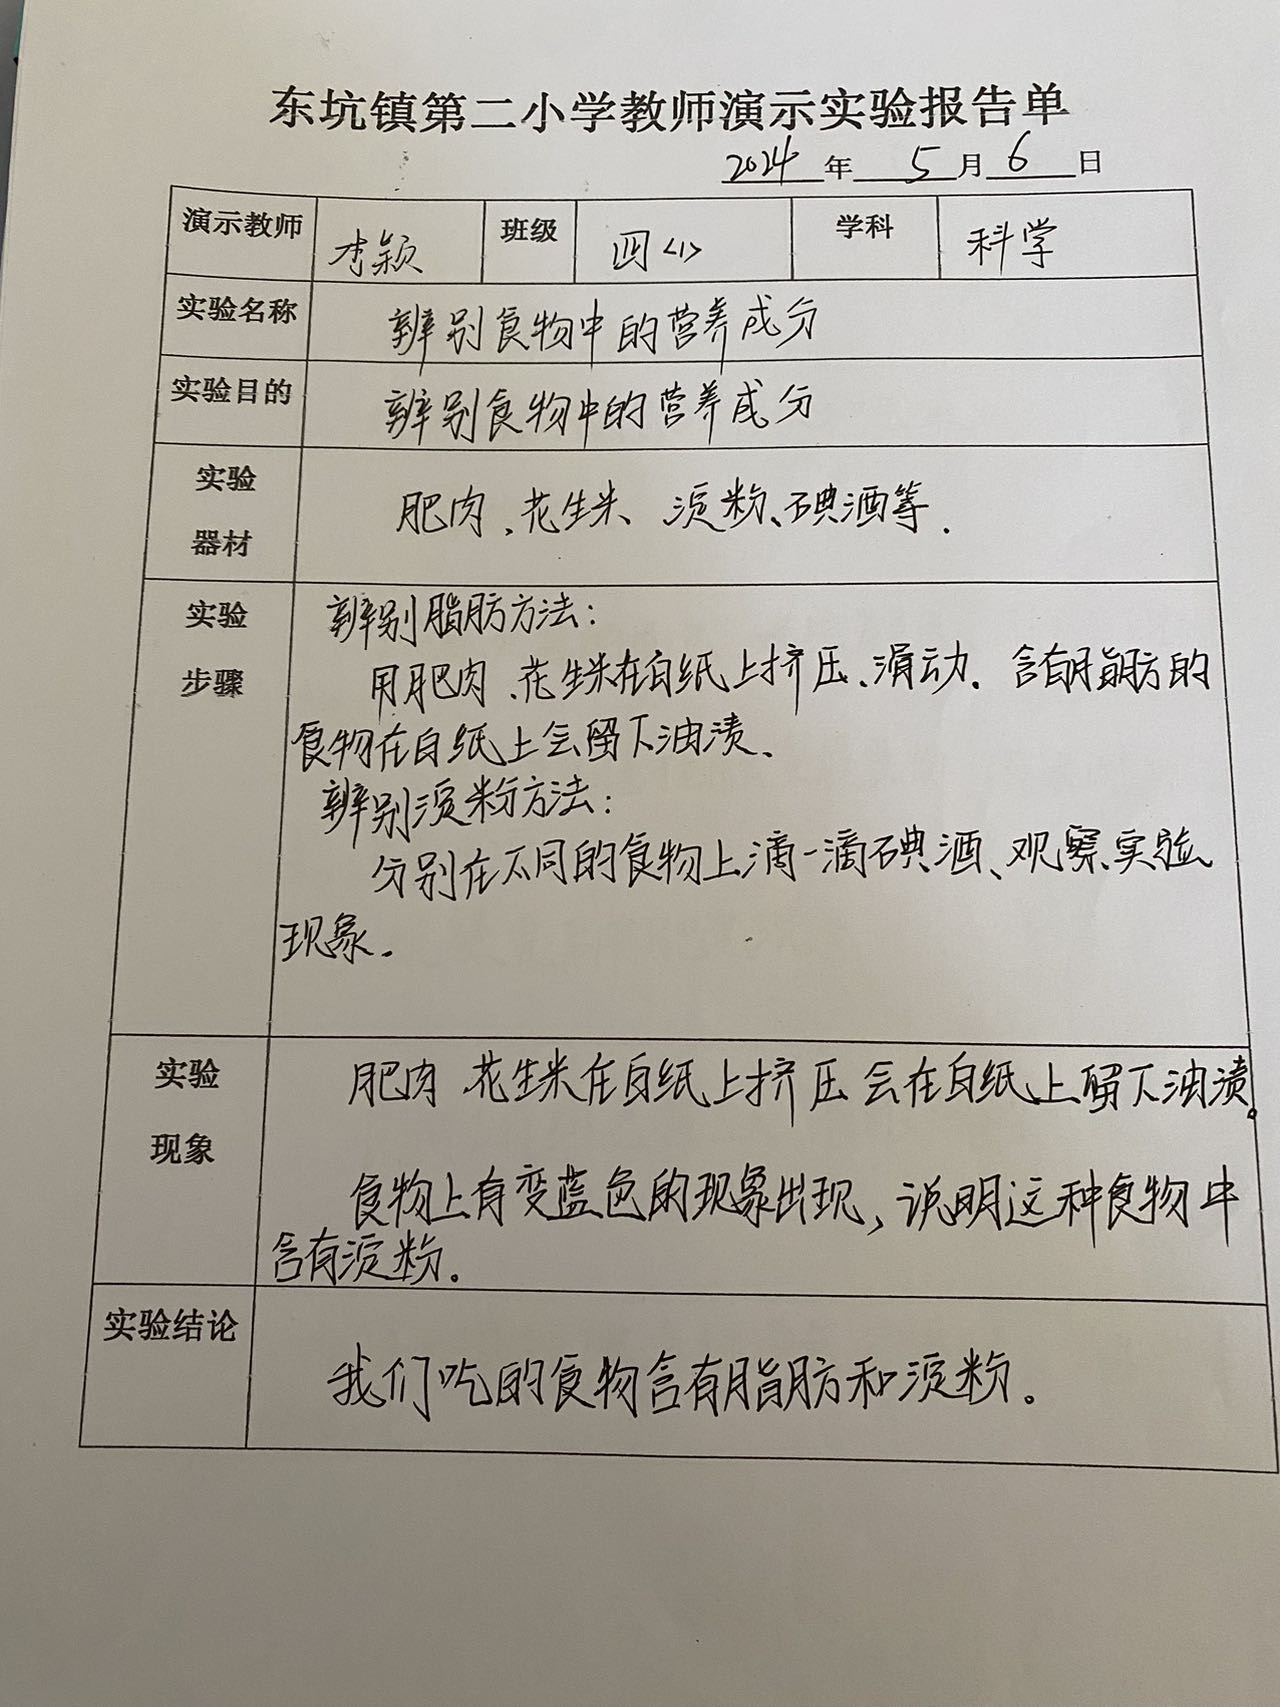 东坑镇第二小学教师演示实验报告单
2024 年 5 月 6 日
演示教师 李颖 班级 四<1> 学科 科学
实验名称 辨别食物中的营养成分
实验目的 辨别食物中的营养成分
实验
器材
肥肉、花生米、淀粉、碘酒等.
实验
步骤
辨别脂肪方法:
用肥肉、花生米在白纸上挤压、滑动. 含有脂肪的
食物在白纸上会留下油渍、
辨别淀粉方法:
分别在不同的食物上滴一滴碘酒、观察实验
现象.
实验
现象
肥肉 花生米在白纸上挤压 会在白纸上留下油渍。
食物上有变蓝色的现象出现, 说明这种食物中
含有淀粉。
实验结论
我们吃的食物含有脂肪和淀粉。